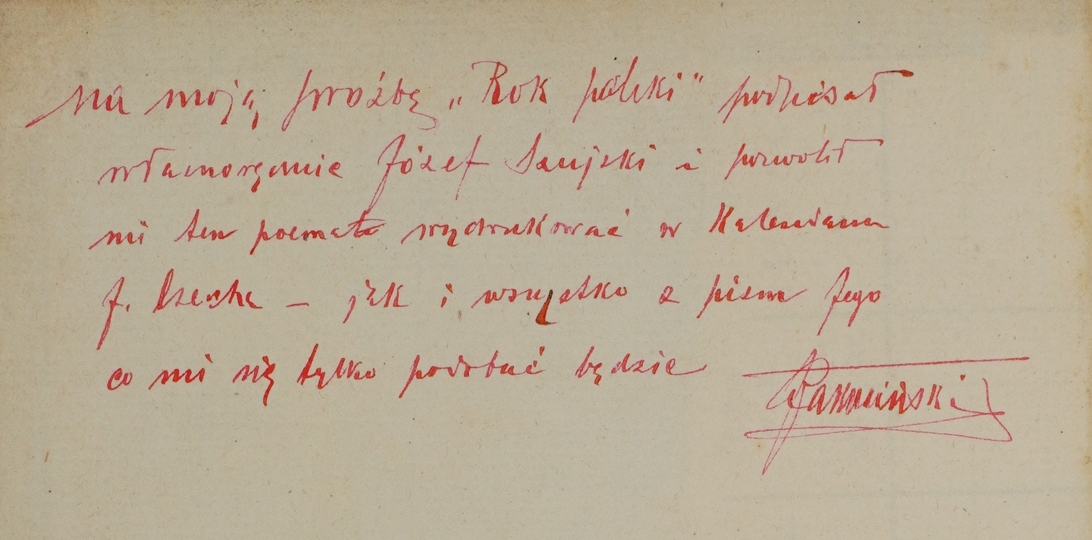 Na moją prośbę „Rok polski" podpisał
własnoręcznie Józef Szujski i pozwolił
mi ten poemat wydrukować w Kalendarzu
J. Czecha – jak i wszystko z pism Jego
co mi się tylko podobać będzie